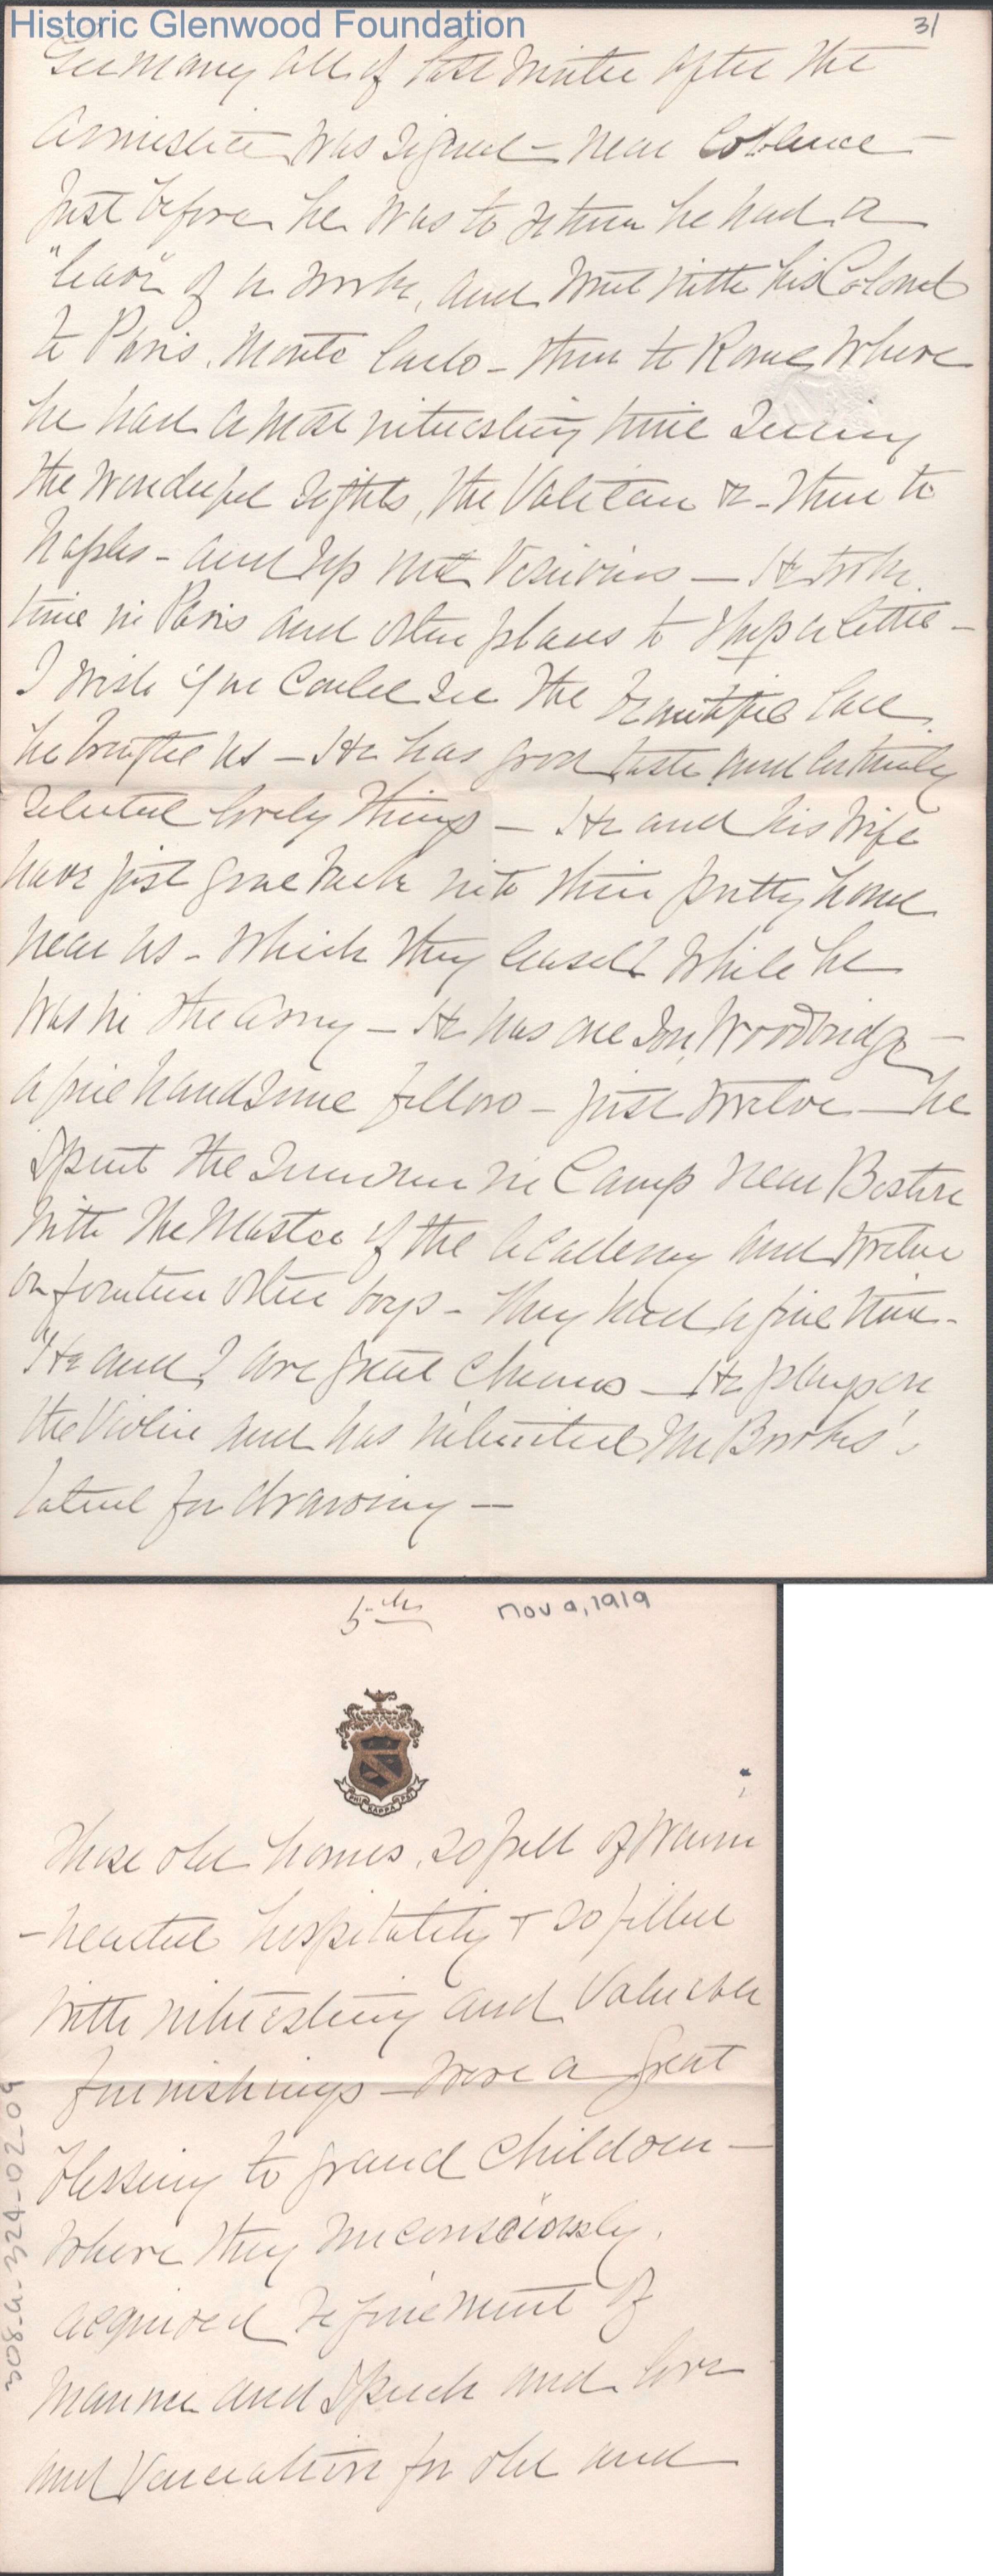 Historic Glenwood Foundation
31
Germany all of last winter after the
Armistice was signed – near Coblence –
Just before he was to return he had a
"leave" of a week, and went with his Colonel
to Paris, Monte Carlo – then to Rome, where
he had a most interesting time seeing
the wonderful sights, the Vatican &c – then to
Naples – and up Mt Vesuvius — He took
time in Paris and other places to shop a little –
I wish you could see the beautiful lace
he brought us – He has good taste and certainly
selected lovely things – He and his wife
have just gone back into their pretty home
near us – which they leased while he
was in the army – He has one son, Woodbridge –
a fine handsome fellow – just twelve – he
spent the summer in Camp near Boston
with the Master of the Academy and twelve
or fourteen other boys – They had a fine time –
He and I are great chums – He plays on
the Violin and has inherited Mr Brooks's
talent for drawing –
5th
Nov 9, 1919
PHI KAPPA PSI
Those old homes, so full of warm
-hearted hospitality + so filled
with interesting and valuable
furnishings – were a great
blessing to grand children –
where they unconsciously
acquired refinement of
manner and speech and love
and veneration for old and
308-A-324-02-09